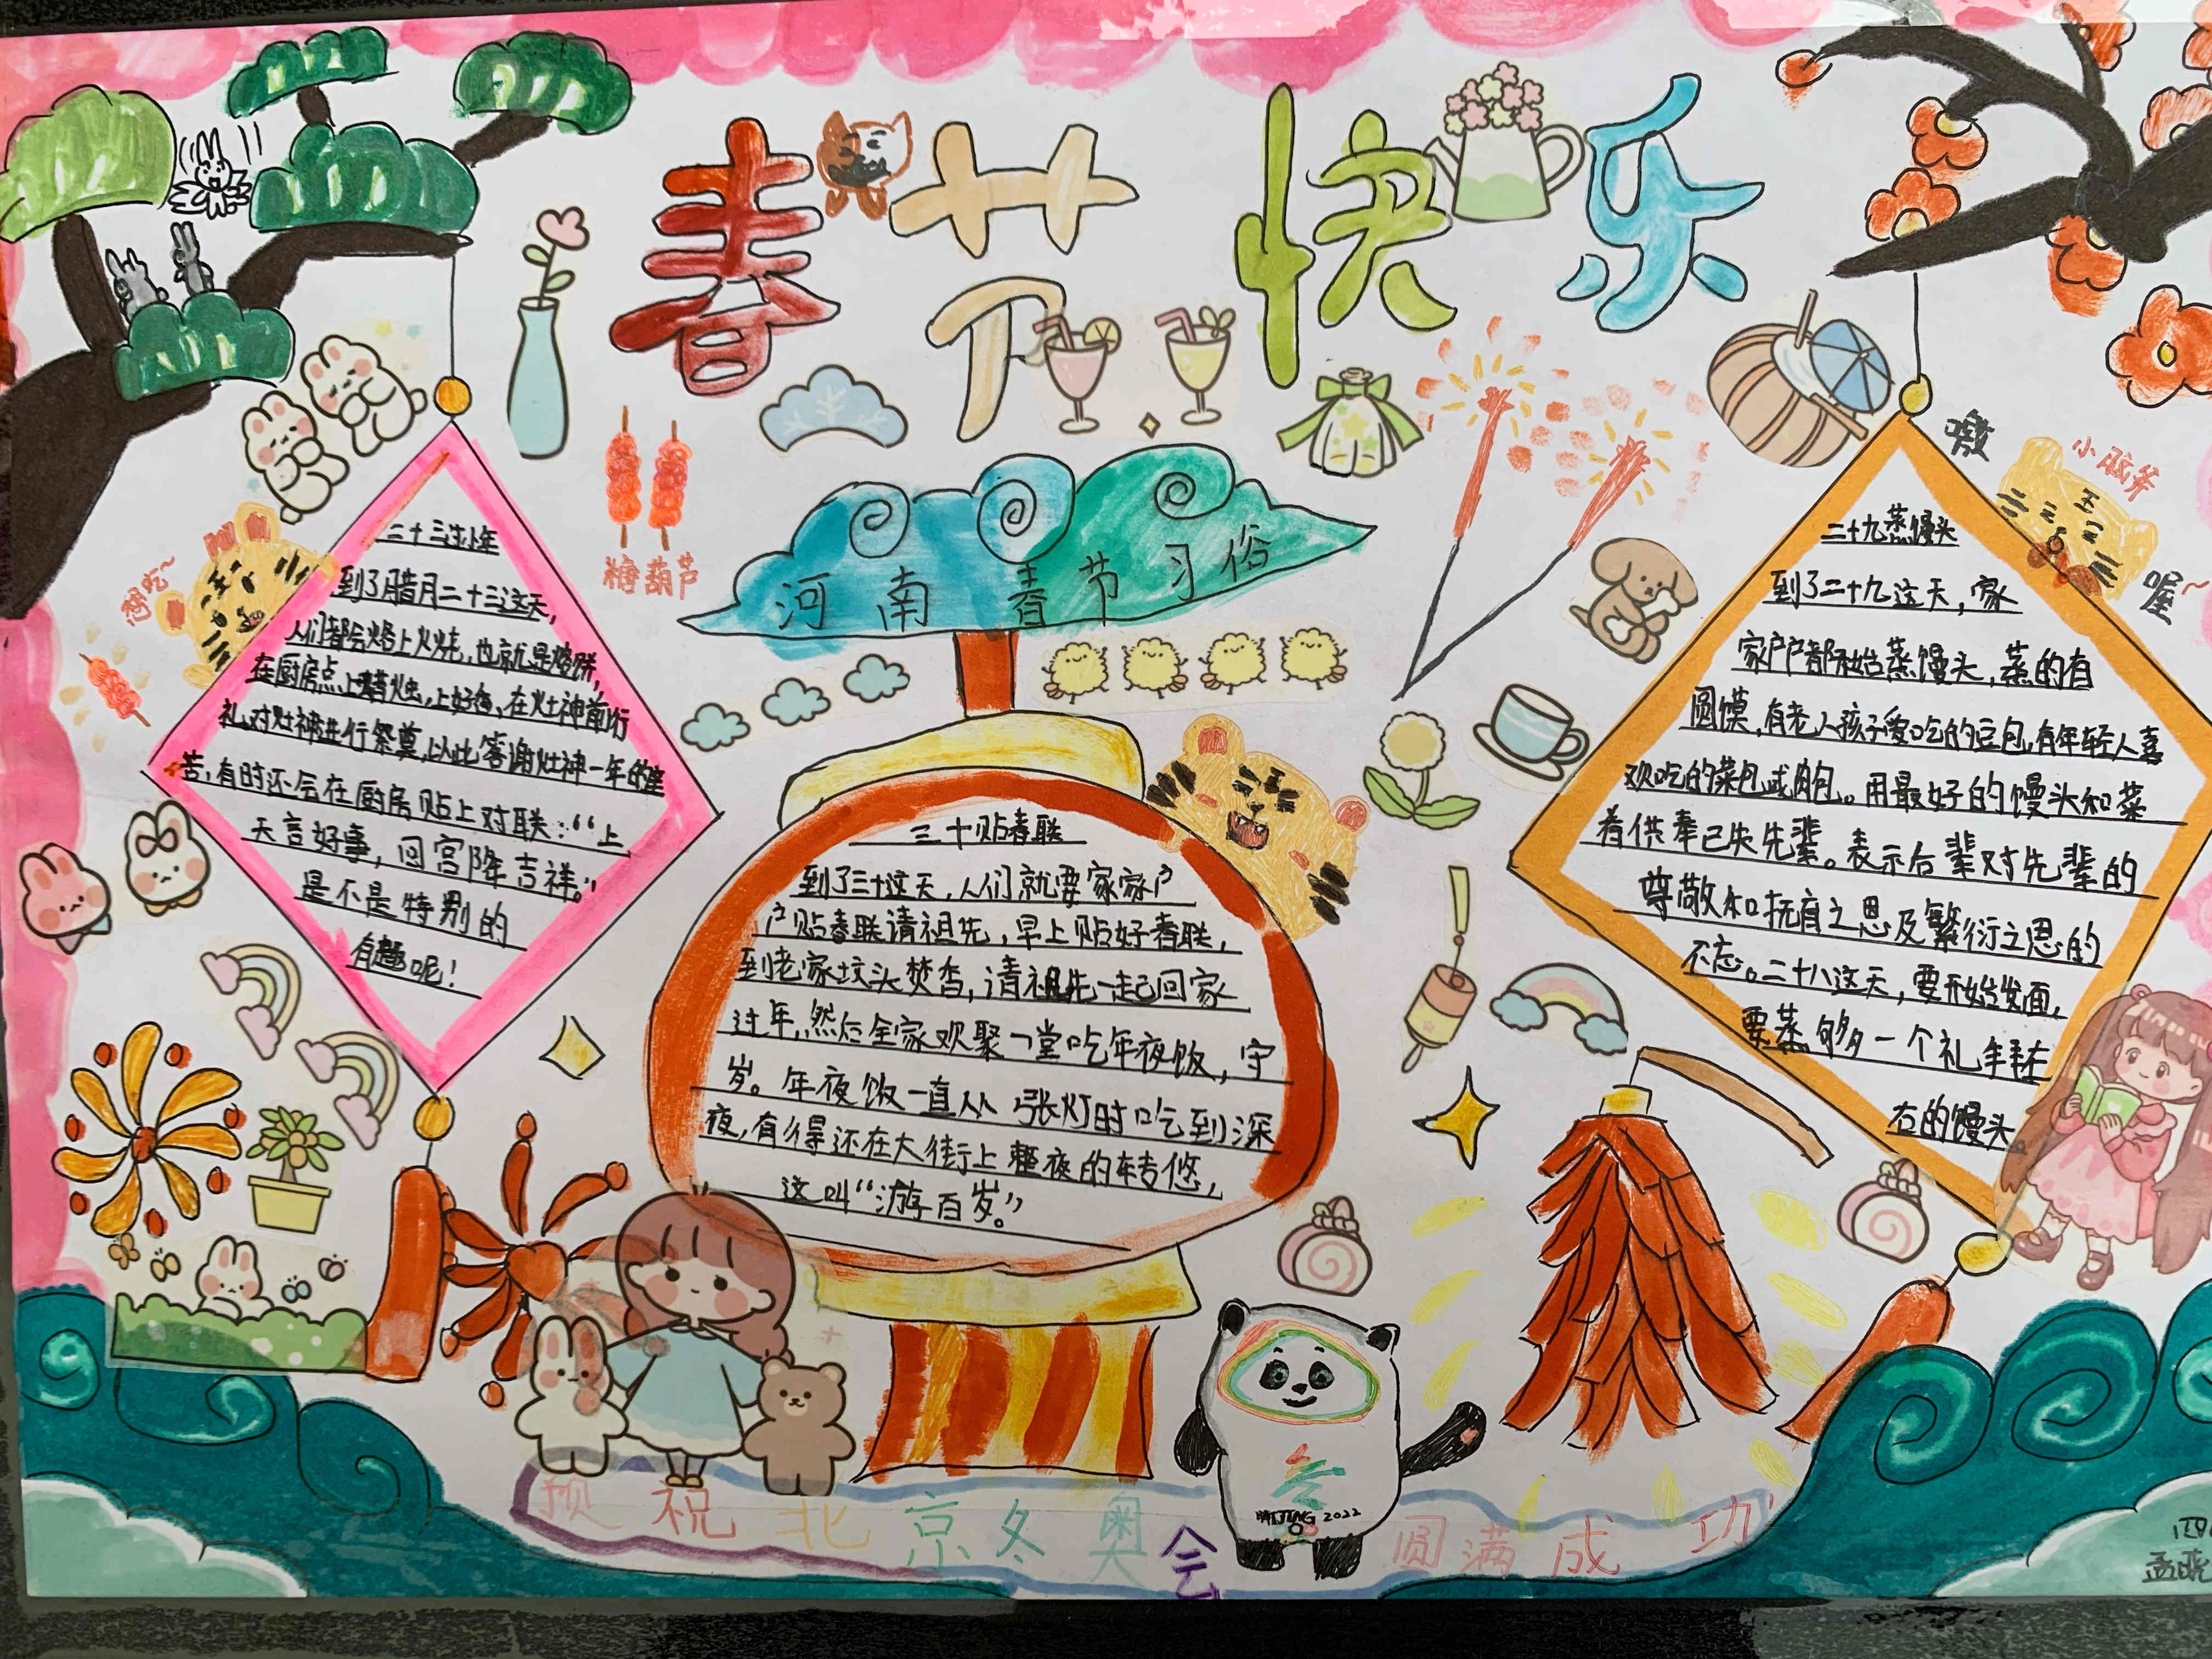 春节快乐
河南春节习俗
糖葫芦
想吃~
嗷
小脑斧
喔~
二十三过小年
到了腊月二十三这天,
人们都会烙上火烧,也就是烙饼,
在厨房点上蜡烛,上好香、在灶神前行
礼,对灶神进行祭奠,以此答谢灶神一年的辛
苦,有时还会在厨房贴上对联:“上
天言好事,回宫降吉祥。”
是不是特别的
有趣呢!
三十贴春联
到了三十这天,人们就要家家户
户贴春联请祖先,早上贴好春联,
到老家坟头焚香,请祖先一起回家
过年,然后全家欢聚一堂吃年夜饭,守
岁。年夜饭一直从张灯时吃到深
夜,有得还在大街上整夜的转悠,
这叫“游百岁。”
二十九蒸馒头
到了二十九这天,家
家户户都开始蒸馒头,蒸的有
圆馍,有老人孩子爱吃的豆包,有年轻人喜
欢吃的菜包或肉包。用最好的馒头和菜
肴供奉已失先辈。表示后辈对先辈的
尊敬和抚育之恩及繁衍之恩的
不忘。二十八这天,要开始发面,
要蒸够一个礼拜左
右的馒头。
BEIJING 2022
预祝北京冬奥会圆满成功
四
孟晓